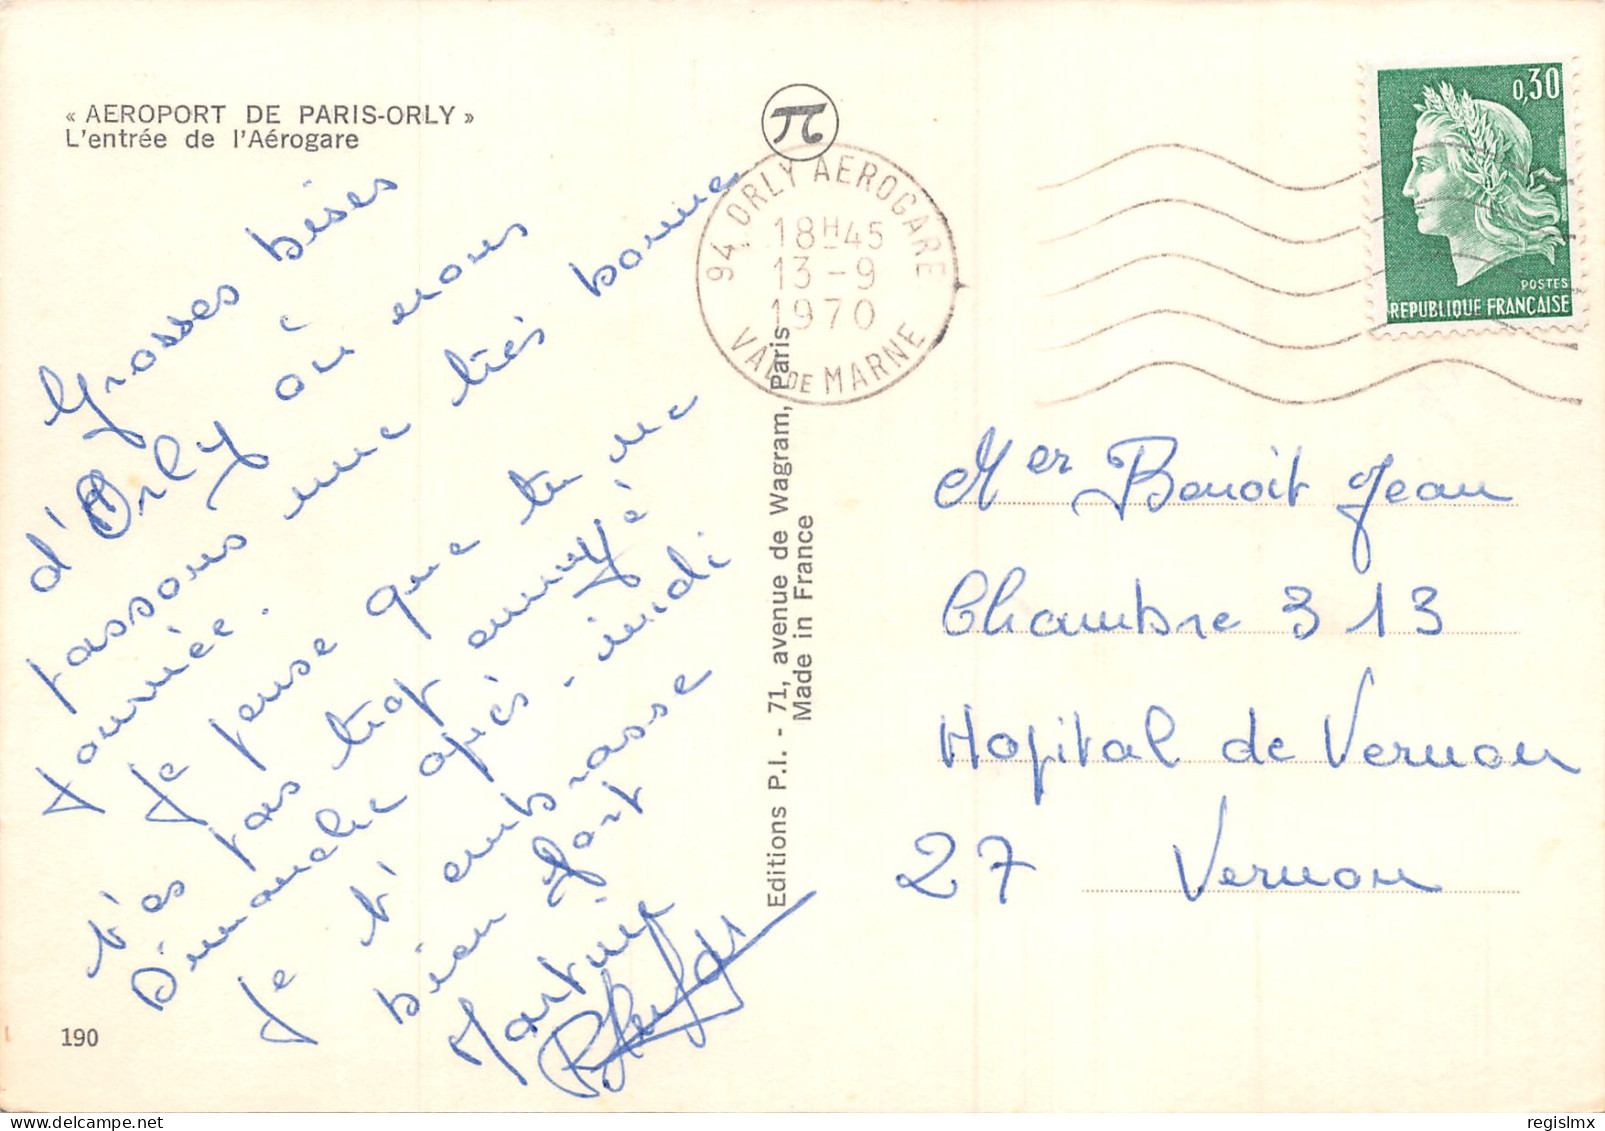 « AEROPORT DE PARIS-ORLY »
L'entrée de l'Aérogare
Grosses bises
d'Orly où nous
passons une très bonne
journée.
Je pense que tu ne
t'es pas trop ennuyé
Dimanche après-midi
Je t'embrasse
bien fort
190
Editions P.I. - 71, avenue de Wagram, Paris
Made in France
π
94_ORLY AEROGARE
18H45
13-9
1970
VAL DE MARNE
0,30
POSTES
REPUBLIQUE FRANÇAISE
Mer Benoit Jean
Chambre 313
Hopital de Vernon
27 Vernon
regislmx